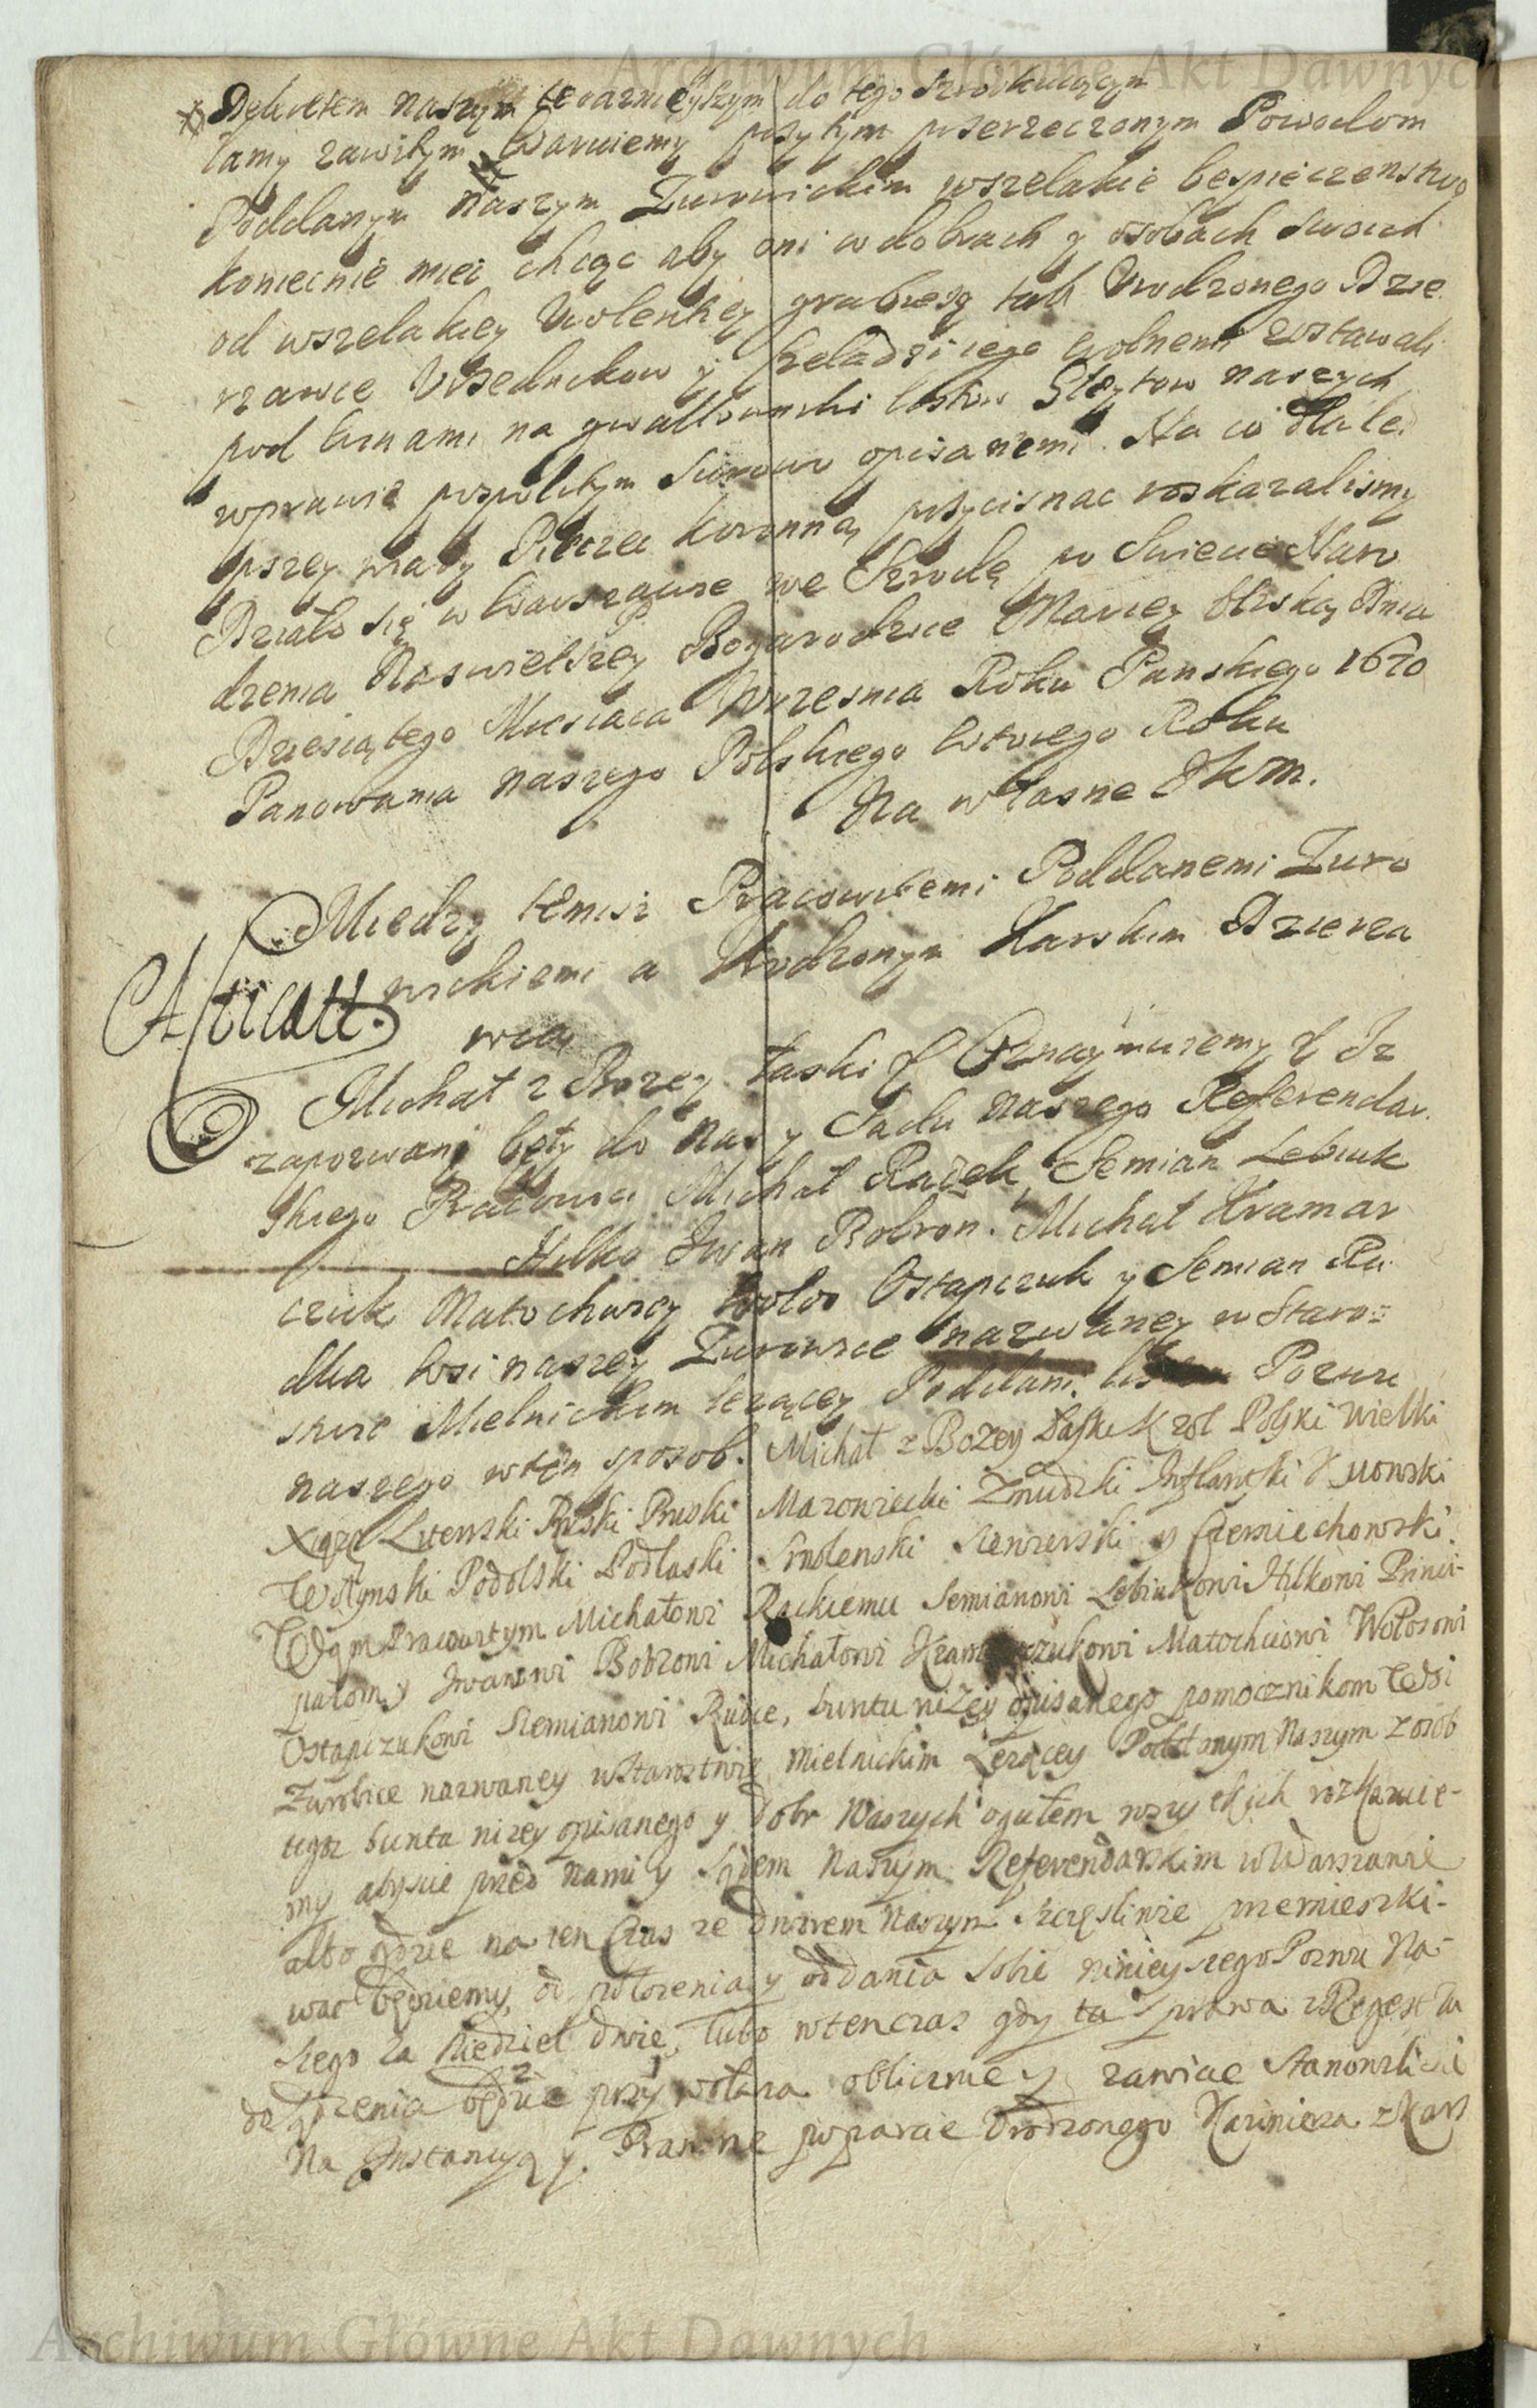 Archiwum Główne Akt Dawnych
Dekretem naszym teraznieyszym do tego
tamy zawitym Waruiemy przytym przerzeczonym Powodom
Poddanym naszym Zurowickim wszelakie bespieczenstwo
koniecnie miec chcąc aby oni w dobrach y osobach swoich
od wszelakiey Violentiey grabiezy tak Urodzonego Dzie
rzawce Urzednikow y Czeladzi iego wolnemi zostawali
pod winami na gwaltowniki listow Gleytow naszych
wprawie pospolitym surowo opisanemi. Na co dla le
pszey wiary Pieczec koronną przycisnac roskazalismy
Działo się w Warszawie we Szrodę po Swiecie Naro
dzenia Naswietszey Bogarodzice Mariey bliską Dnia
Dziesiątego Miesiaca Wrzesnia Roku Panskiego 1670
Panowania naszego Polskiego wtorego Roku
Na własne JKM.
Miedzy temisz Pracowitemi Poddanemi Zuro
wickiemi a Urodzonym Karskim Dzierza
wcą
Michał z Bozey łaski & Oznaymuiemy & Iz
zapozwani byli do Nas y Sadu naszego Referendar
skiego Pracowici Michał Racek, Semian Lebiuk
Hilko Iwan Bobron. Michał Kramar
czuk Matochwiey Wolos Ostapczuk y Semian Ru
dka wsi naszey Zurowice nazwaney w Staro=
stwie Mielnickim lezącey Poddani. Pozwu
naszego wten sposob. Michał z Bozey Łaski Krol Polski Wielki
Xąze Litewski Ruski Pruski Mazowiecki Zmudzki Inflantski Kijowski
Wołynski Podolski Podlaski Smolenski Siewierski y Czerniechowski.
Wam Pracowitym Michałowi Rackiemu Semianowi Lebiukowi Hilkowi Princi-
pałom y Iwanowi Bobroni Michałowi Kramarczukowi Matochwiowi Wołosowi
Ostapczukowi Siemianowi Rudce, buntu nizey opisanego pomocznikom Wsi
Zurobice nazwaney w Starostwie Mielnickim Lezącey Poddanym Naszym z osob
tegoz buntu nizey opisanego y Dobr Waszych ogułem wszytkich roskazuie-
my abyscie przed Nami y Sądem Naszym Referendarskim w Warszawie
albo gdzie na ten Czas ze Dworem Naszym szczęsliwie przemieszki-
wac będziemy, od połozenia y oddania sobie ninieyszego Pozwu Na-
szego za Niedziel dwie, lubo wtenczas gdy ta sprawa z Regestru
do sądzenia będzie przywołana oblicznie y zawicie Stanowili się
Na Instancyą y Prawne poparcie Urodzonego Kazimierza z Kars
Archiwum Główne Akt Dawnych